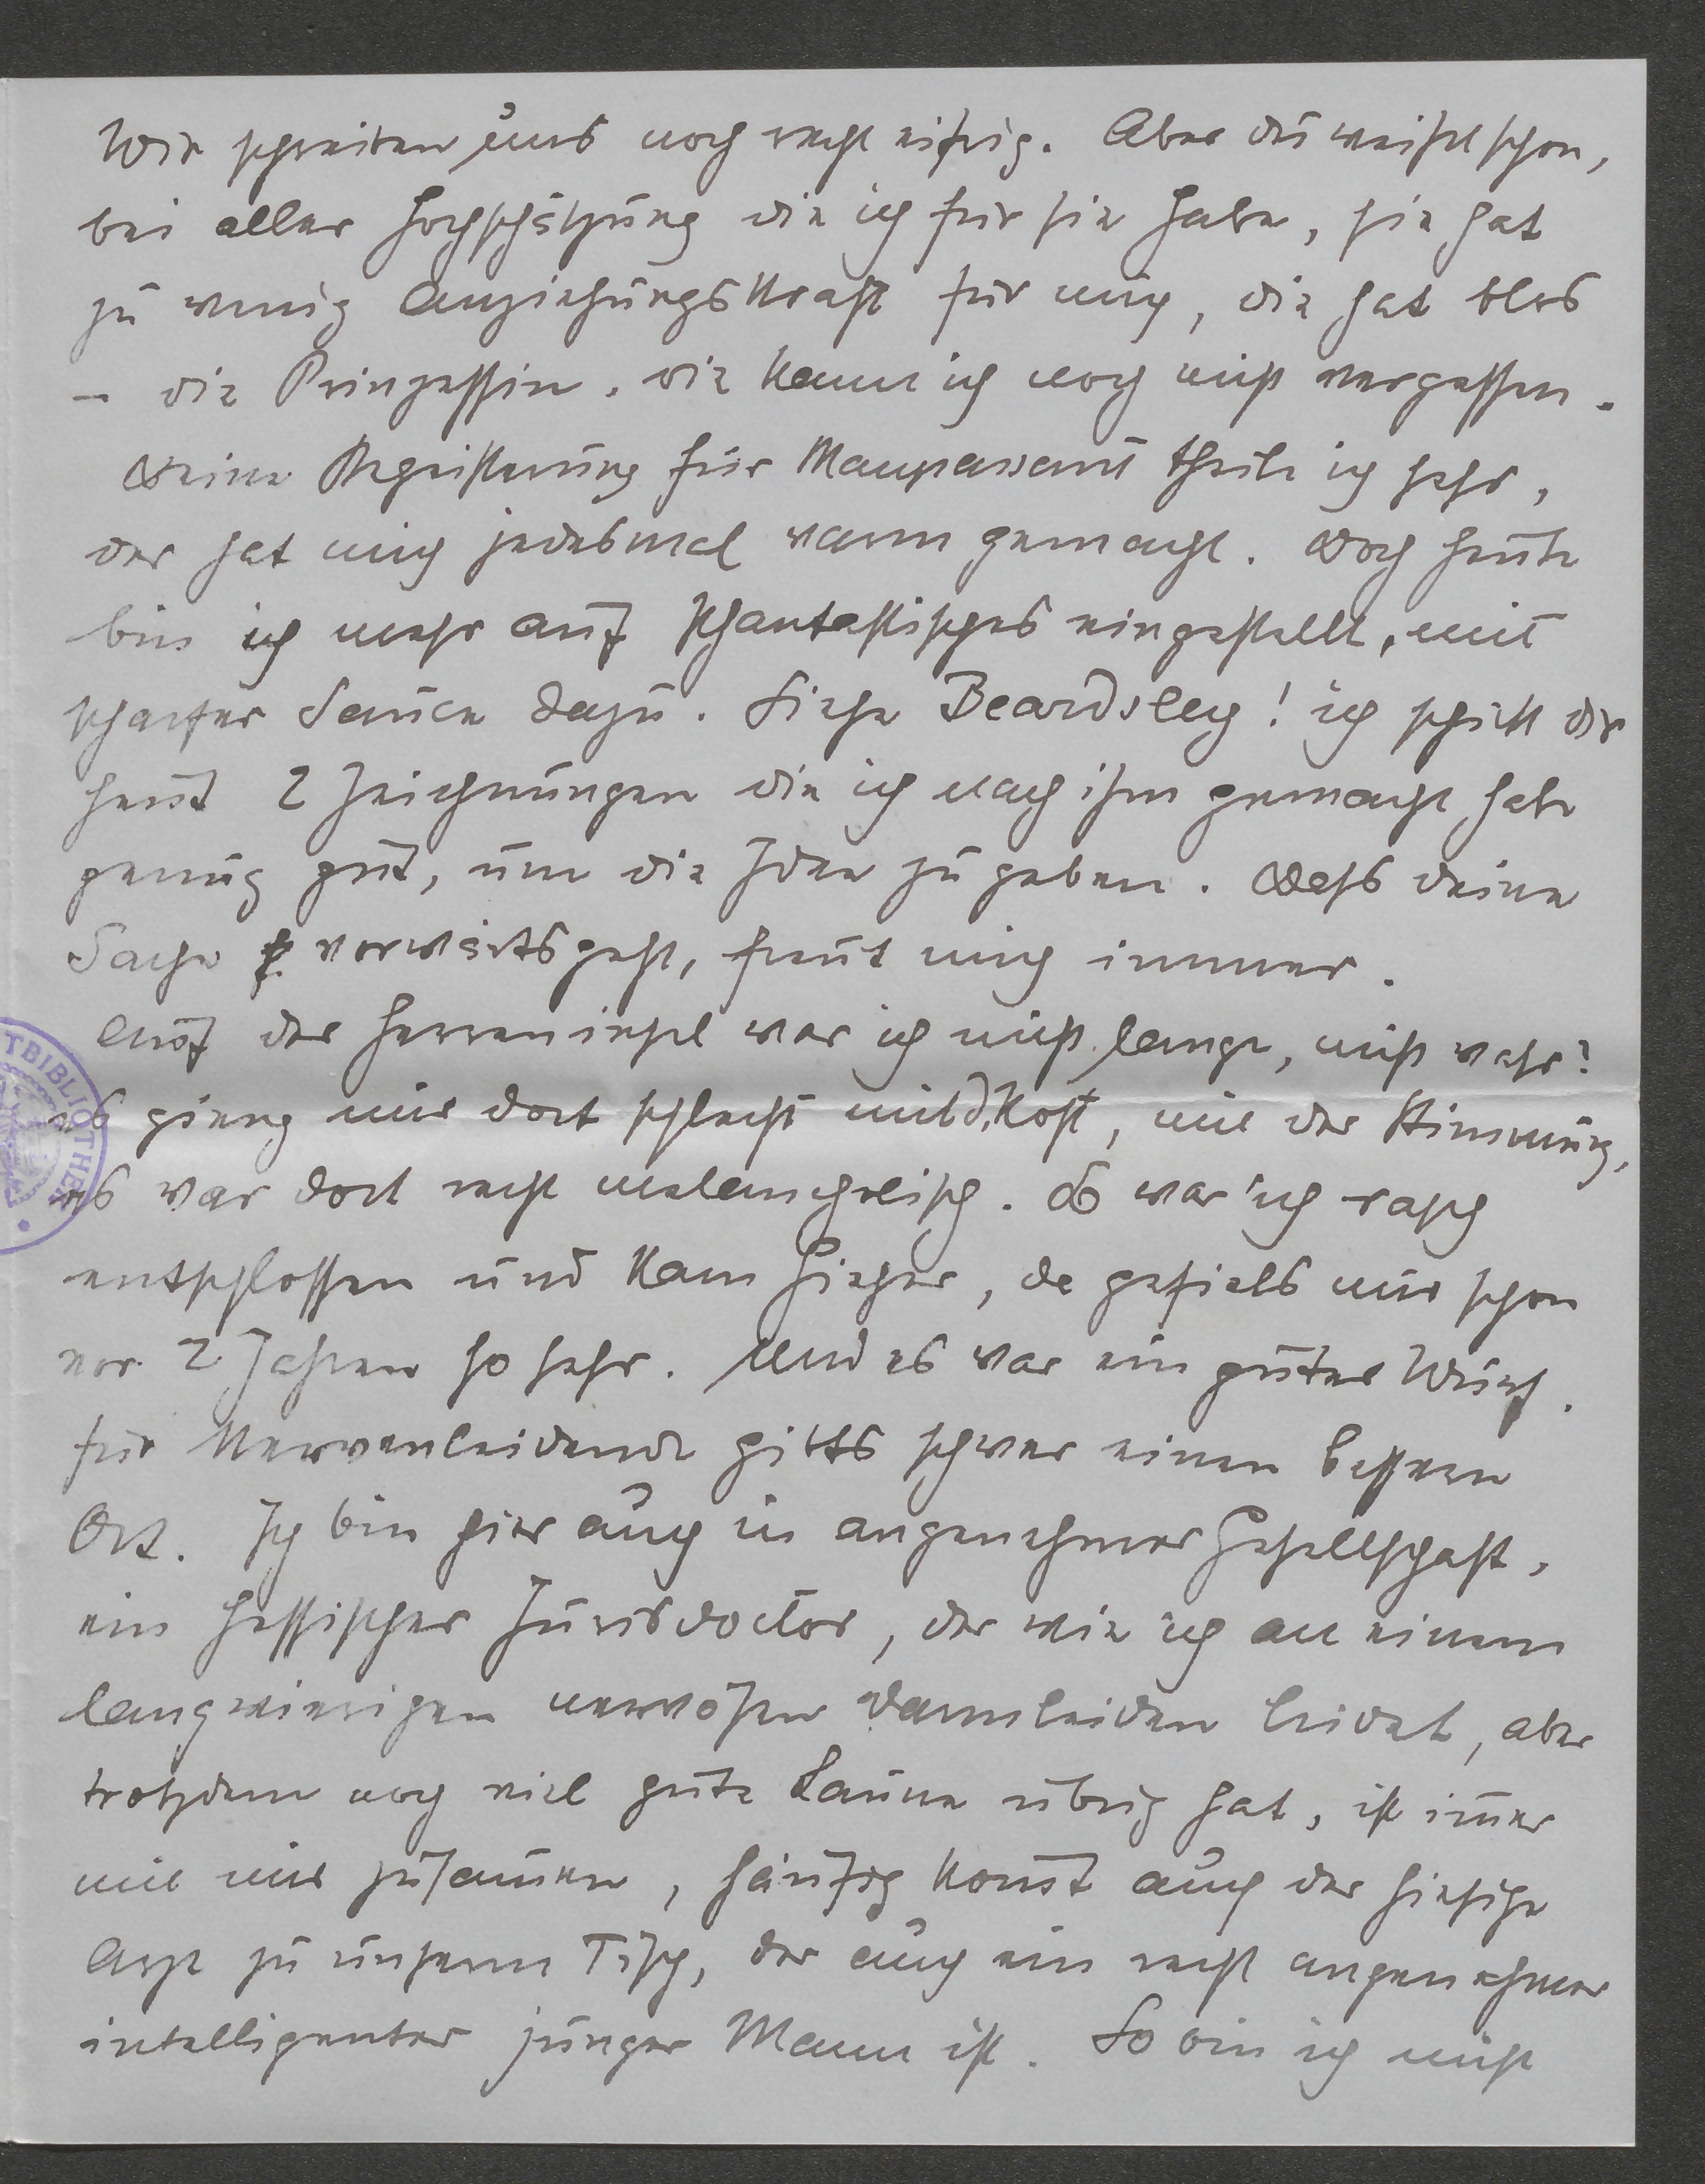 Wir schreiben uns noch recht eifrig. Aber du weißt schon,
bei aller Hochschätzung die ich für sie habe, sie hat
zu wenig Anziehungskraft für mich, die hat blos
– die Prinzessin. die kann ich noch nicht vergessen.
Deine Begeisterung für Maupassant theile ich sehr,
der hat mich jedesmal warm gemacht. Doch heute
bin ich mehr auf Phantastisches eingestellt, mit
scharfer Sauce dazu. Siehe Beardsley! ich schick dir
heut 2 Zeichnungen die ich nach ihm gemacht habe
genug gut, um die Idee zu geben. Dass deine
Sache vorwärtsgeht, freut mich immer.
Auf der Herreninsel war ich nicht lange, nicht wahr?
es gieng mir dort schlecht mit d. Kost, mit der Stimmung,
es war dort recht melancholisch. So war ich rasch
entschlossen und kam hieher, da gefiels mir schon
vor 2 Jahren so sehr. Und es war ein guter Wurf.
für Nervenleidende gibts schwer einen bessern
Ort. Ich bin hier auch in angenehmer Gesellschaft,
ein hessischer Jurisdoctor, der wie ich an einem
langwierigen nervösen Darmleiden leidet, aber
trotzdem noch viel gute Laune übrig hat, ist im̄er
mit mir zusam̄en, häufig kom̄t auch der hiesige
Arzt zu unserm Tisch, der auch ein recht angenehmer
intelligenter junger Mann ist. So bin ich nicht
TBIBLIOTHEK